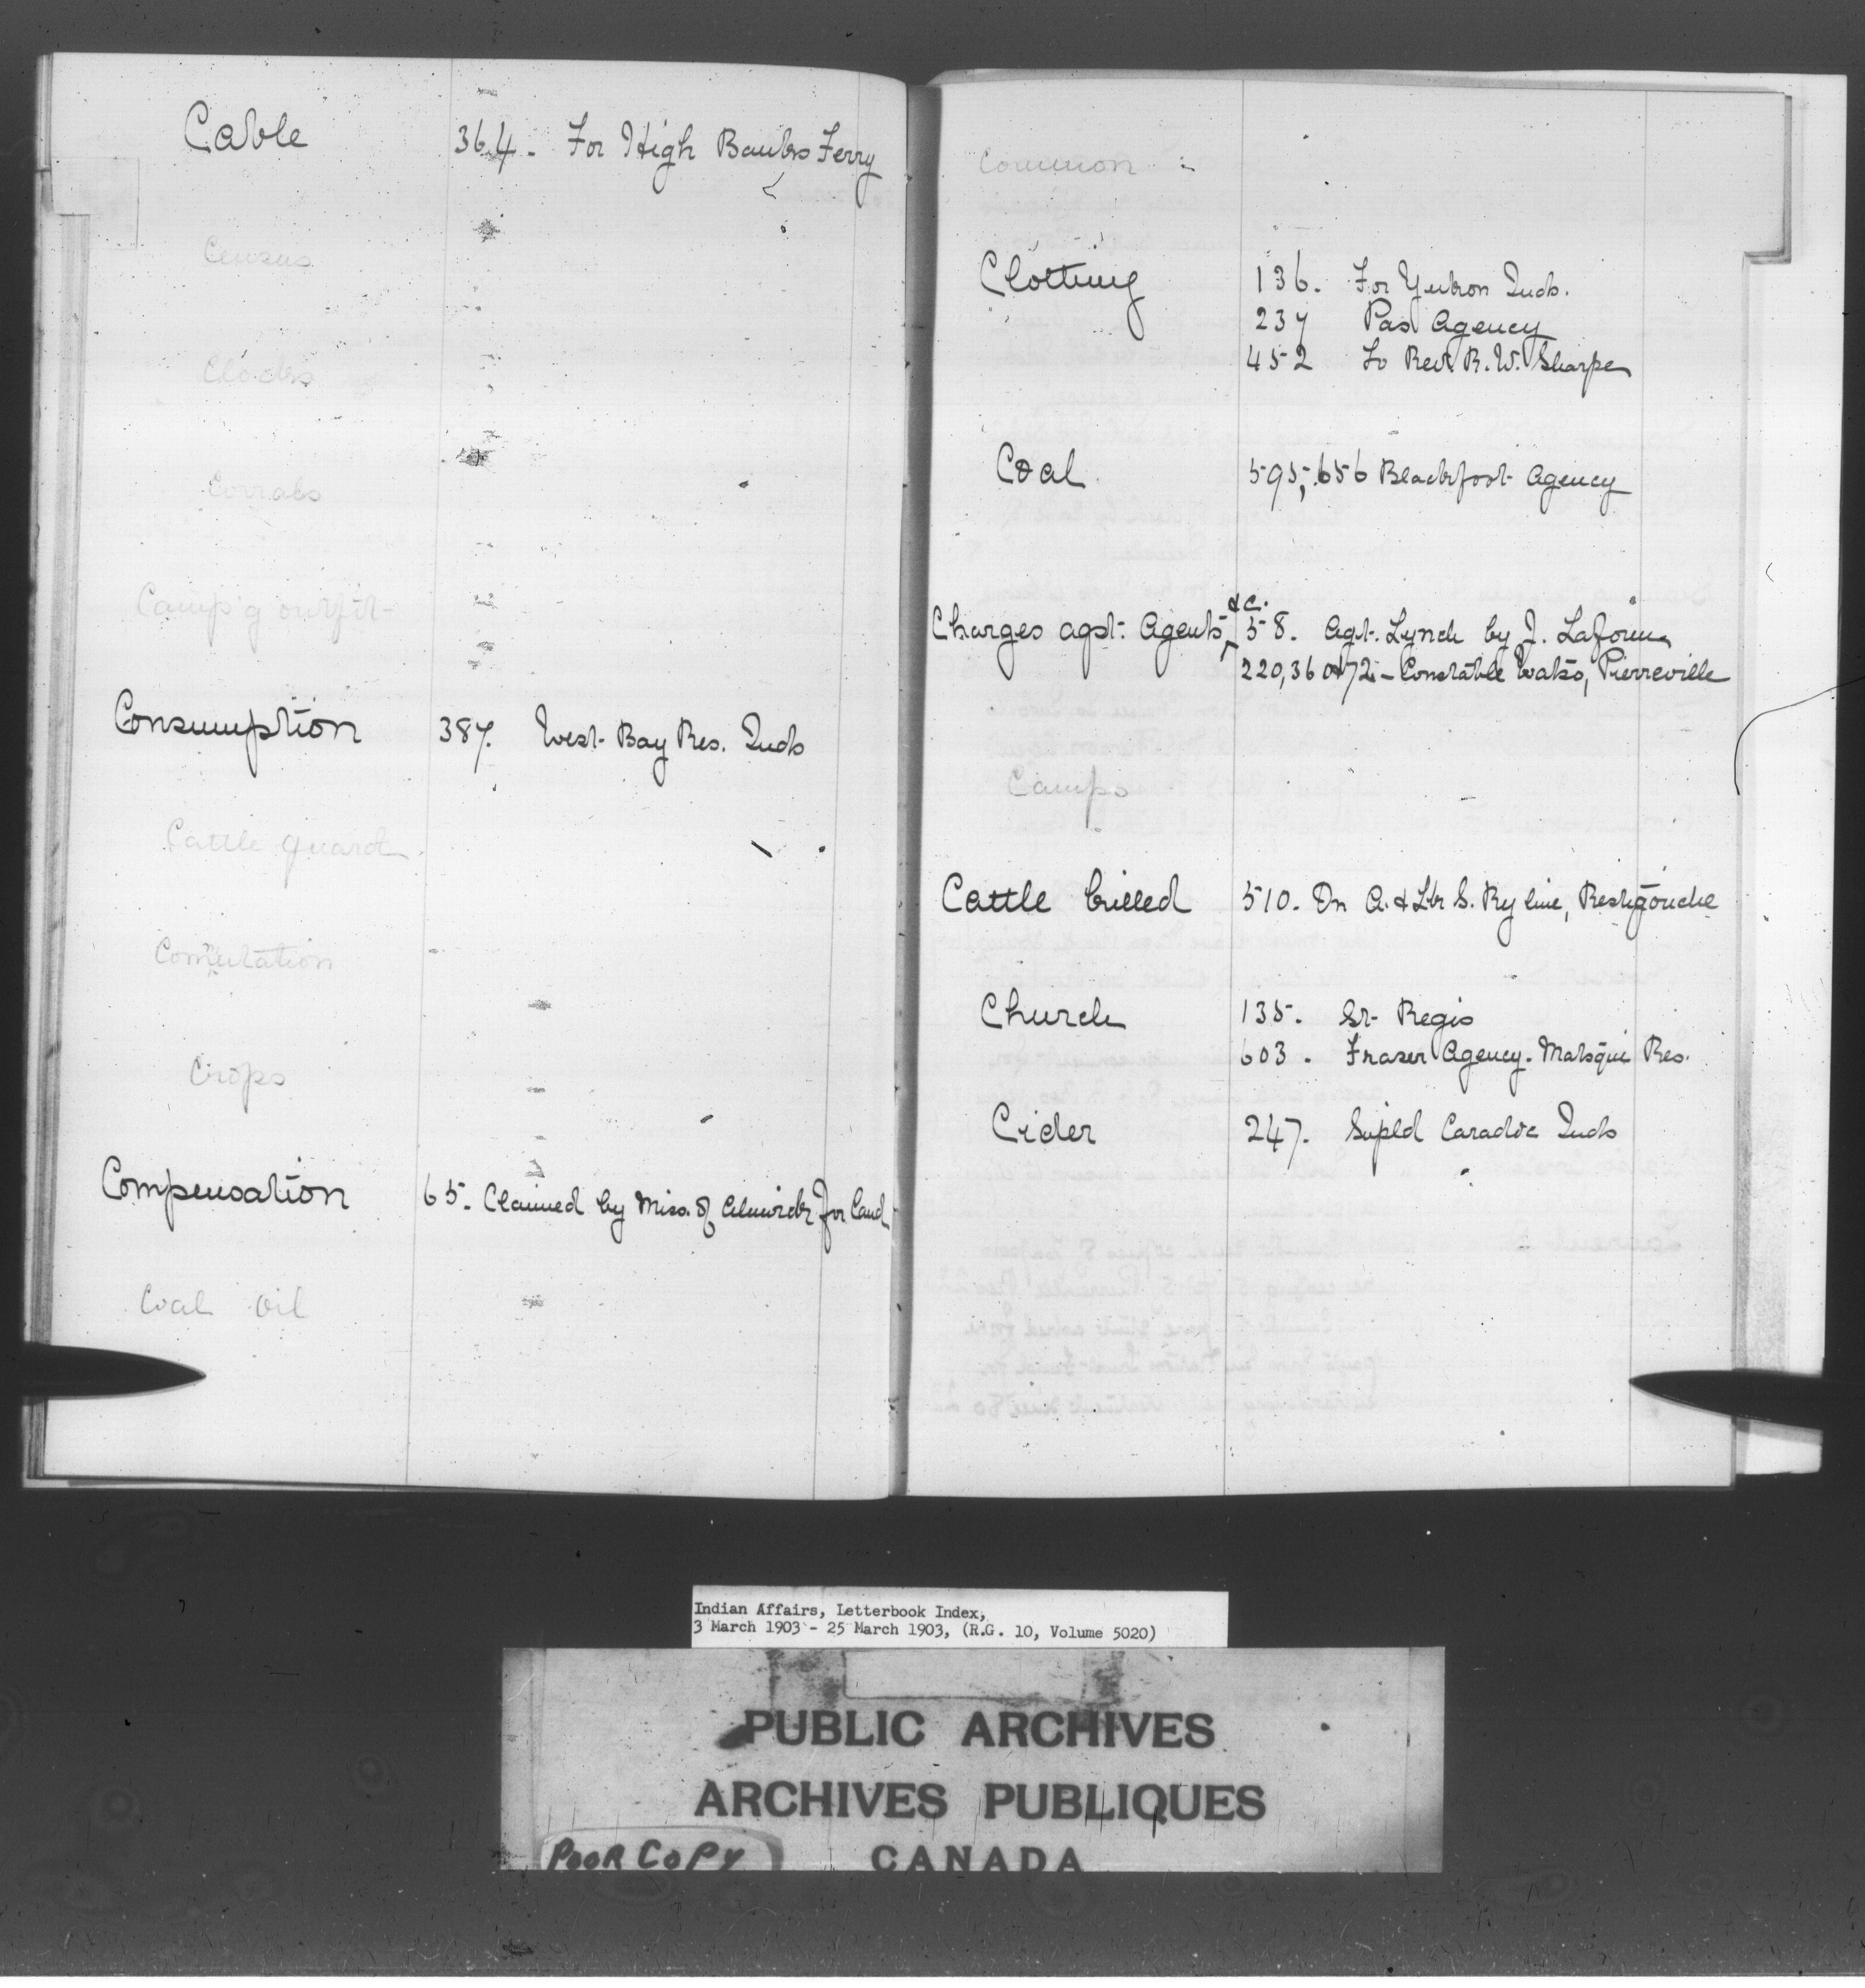 Cable 364. For High Banks Ferry
Census
Clocks
Corrals
Camp'g outfit
Consumption 387. West Bay Res. Inds
Cattle guard
Comutation
Crops
Compensation 65. Claimed by Miss. of Alnwick for land
Coal oil
Common
Clothing 136. For Yukon Inds.
237 Pas Agency
452 To Rev. R. W. Sharpe
Coal 595, 656 Blackfoot Agency
Charges agst. Agents, &c. 58. Agt. Lynch by J.
220, 360 472 - Constable Watso, Pierreville
Camps
Cattle killed 510. On A. & Lke S. Ry line, Restigouche
Church 135. St. Regis
603. Fraser Agency. Matsqui Res.
Cider 247. Supld Caradoc Inds
Indian Affairs, Letterbook Index,
3 March 1903 - 25 March 1903, (R.G. 10, Volume 5020)
PUBLIC ARCHIVES
ARCHIVES PUBLIQUES
CANADA
POOR COPY